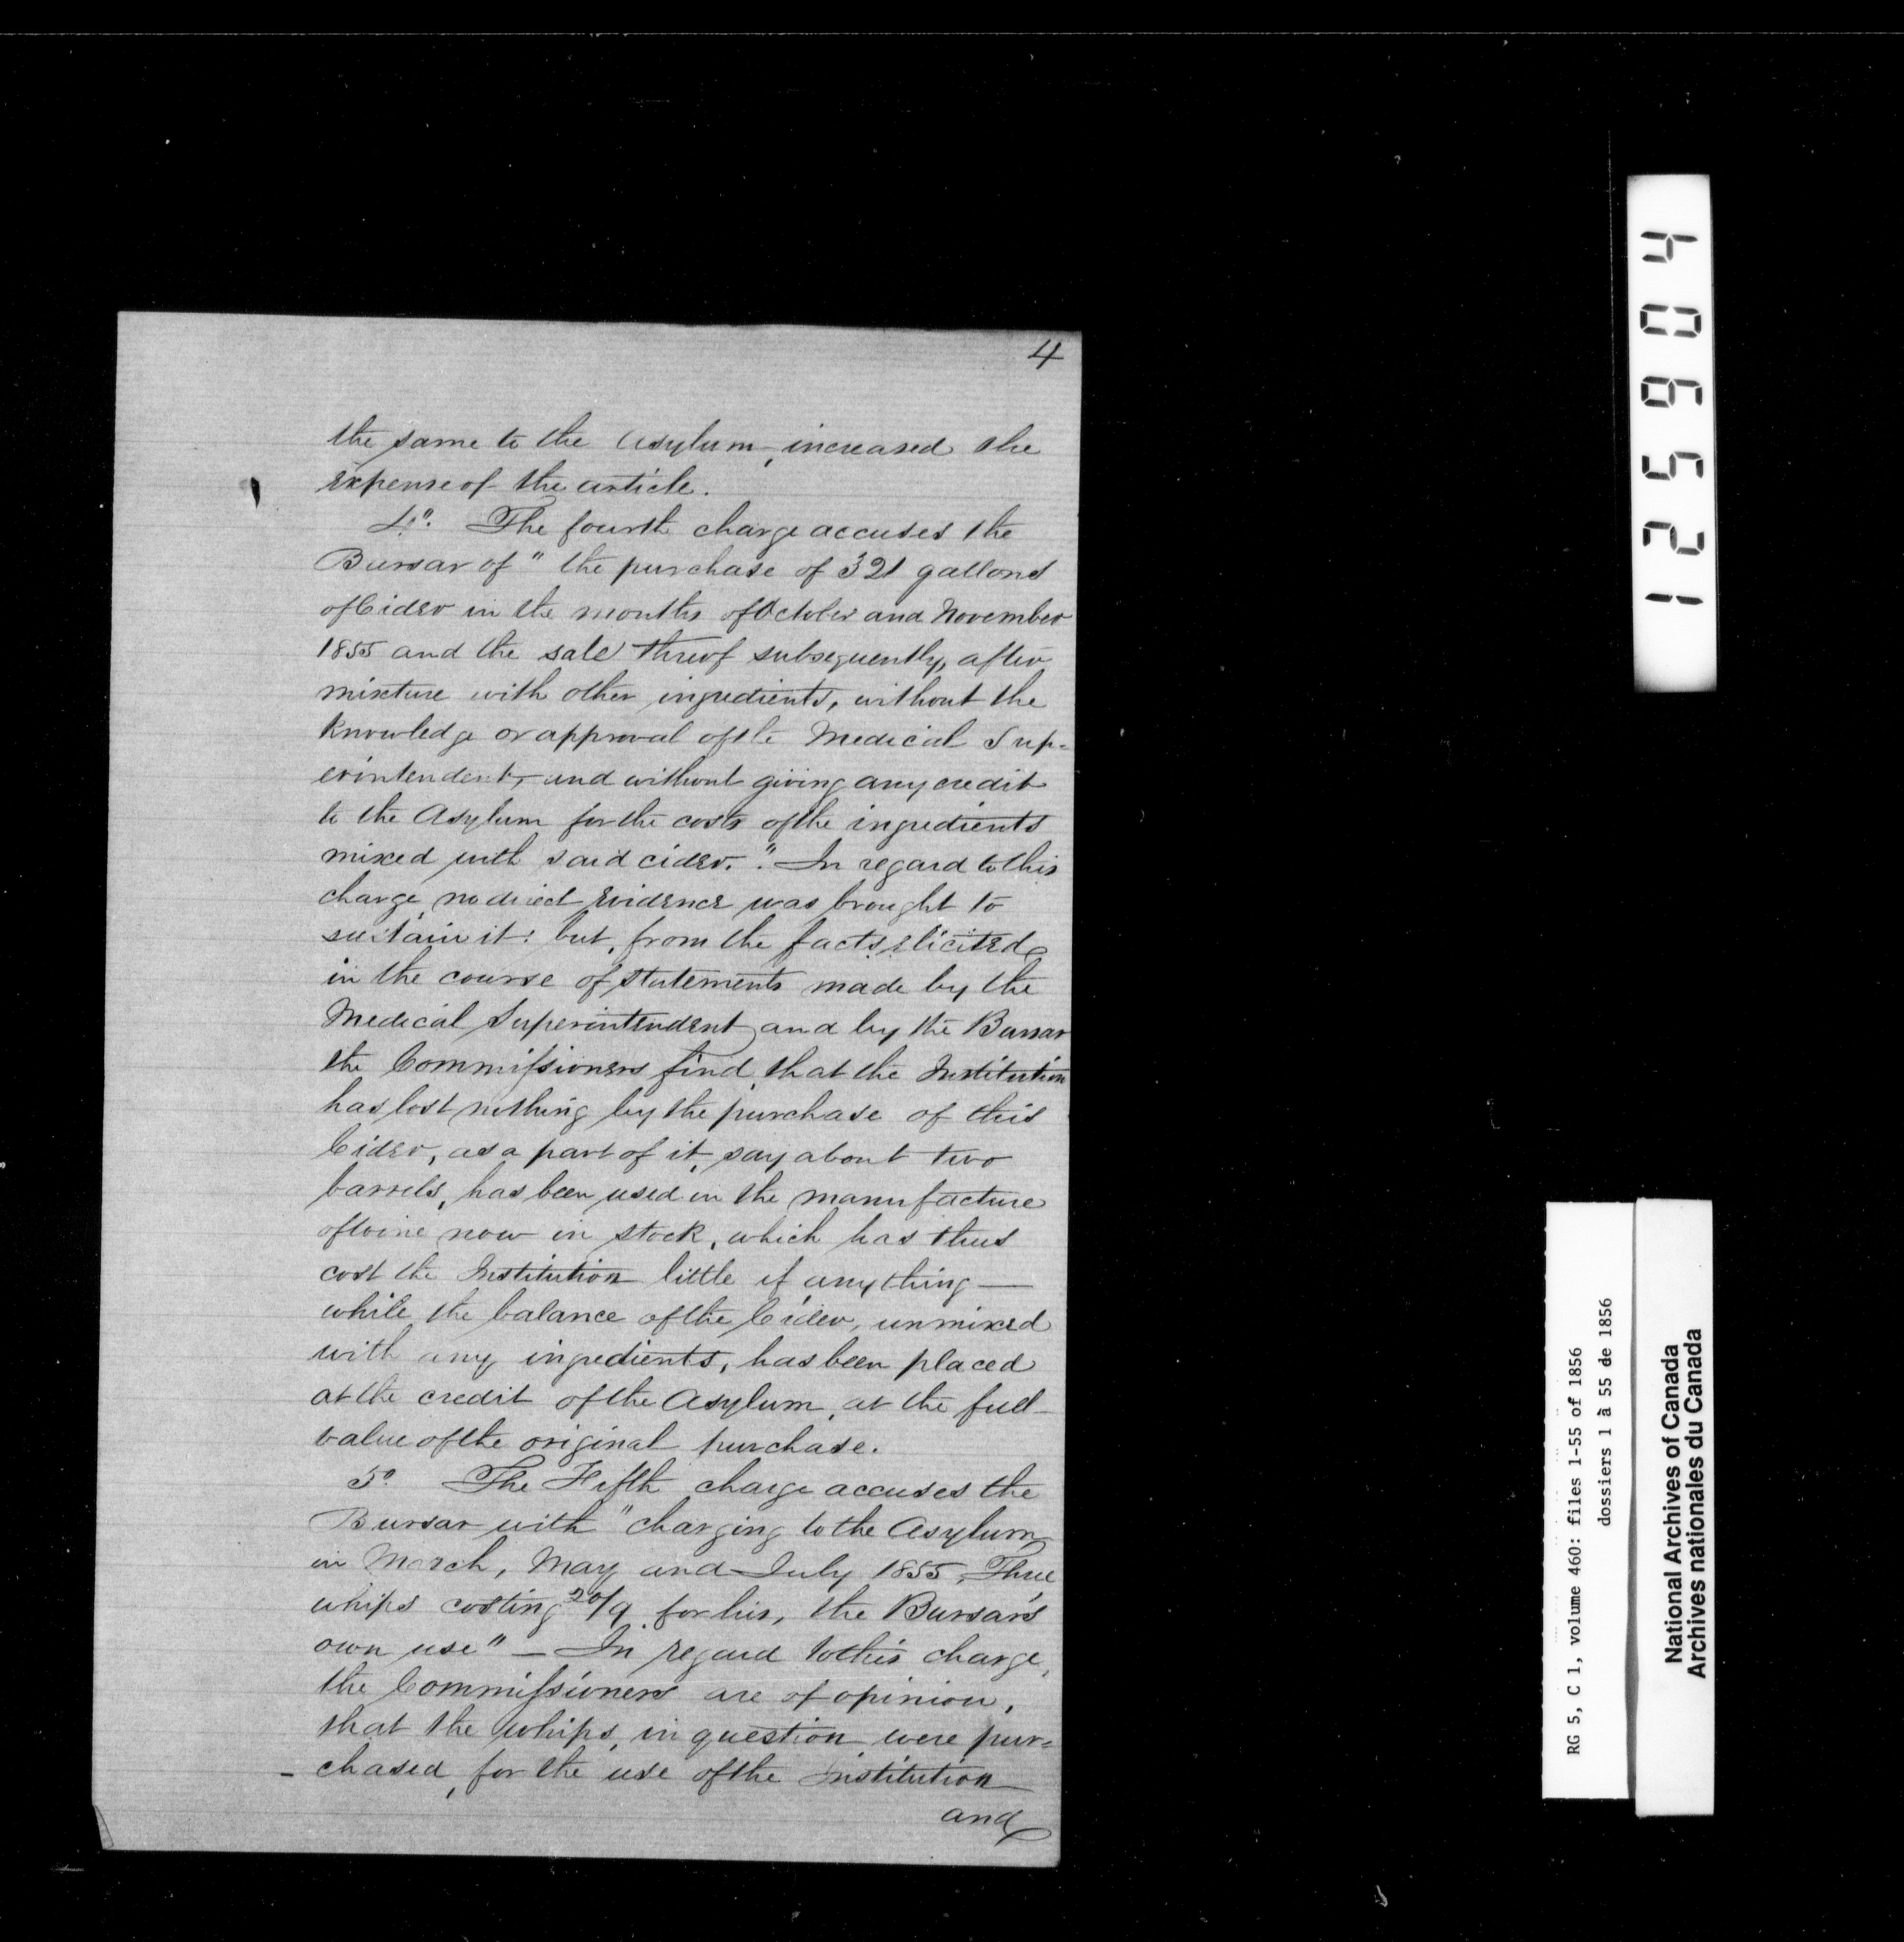 4
the same to the Asylum, increased the
expense of the article.
4o. The fourth charge accuses the
Bursar of "the purchase of 321 gallons
of Cider in the months of October and November
1855 and the sale threof subsequently, after
mixture with other ingredients, without the
knowledge or approval of the Medical Sup=
erintendent, and without giving any credit
to the Asylum for the costs of the ingredients
mixed with said cider.". In regard to this
charge, no direct evidence was brought to
sustain it: but, from the facts, elicited
in the course of statements made by the
Medical Superintendent and by the Bursar
the Commissioners find, that the Institution
has lost nothing by the purchase of this
Cider, as a part of it, say about two
barrels, has been used in the manufacture
of wine now in stock, which has thus
cost the Institution little if anything —
while the balance of the Cider, unmixed
with any ingredients, has been placed
at the credit of the Asylum, at the full
value of the original purchase.
5o The Fifth charge accuses the
Bursar with "charging to the Asylum
in March, May and July 1855, Three
whips costing 20/9 for his, the Bursar's
own use" — In regard to this charge,
the Commissioners are of opinion,
that the whips, in question, were pur=
- chased, for the use of the Institution
and
125904
RG 5, C 1, volume 460: files 1-55 of 1856
dossiers 1 à 55 de 1856
National Archives of Canada
Archives nationales du Canada